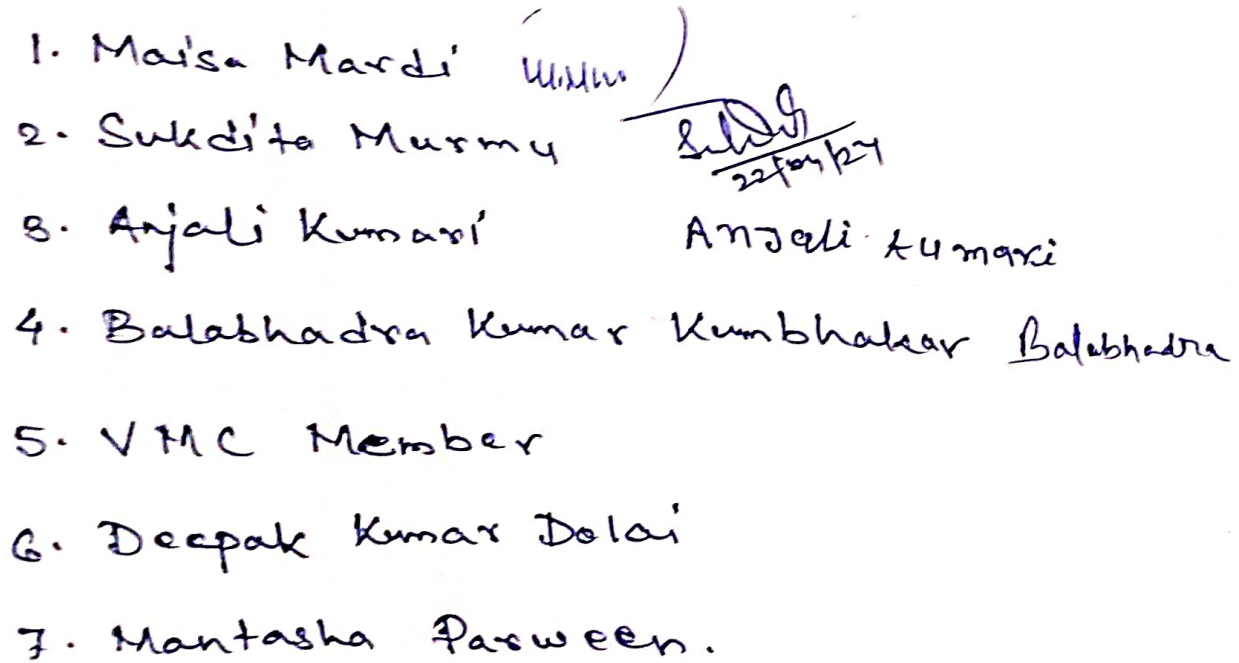 1. Maisa Mardi
2. Sukdita Murmu
22/04/24
3. Anjali Kumari Anjali Kumari
4. Balabhadra Kumar Kumbhakar Balabhadra
5. VMC Member
6. Deepak Kumar Dolai
7. Mantasha Parween.